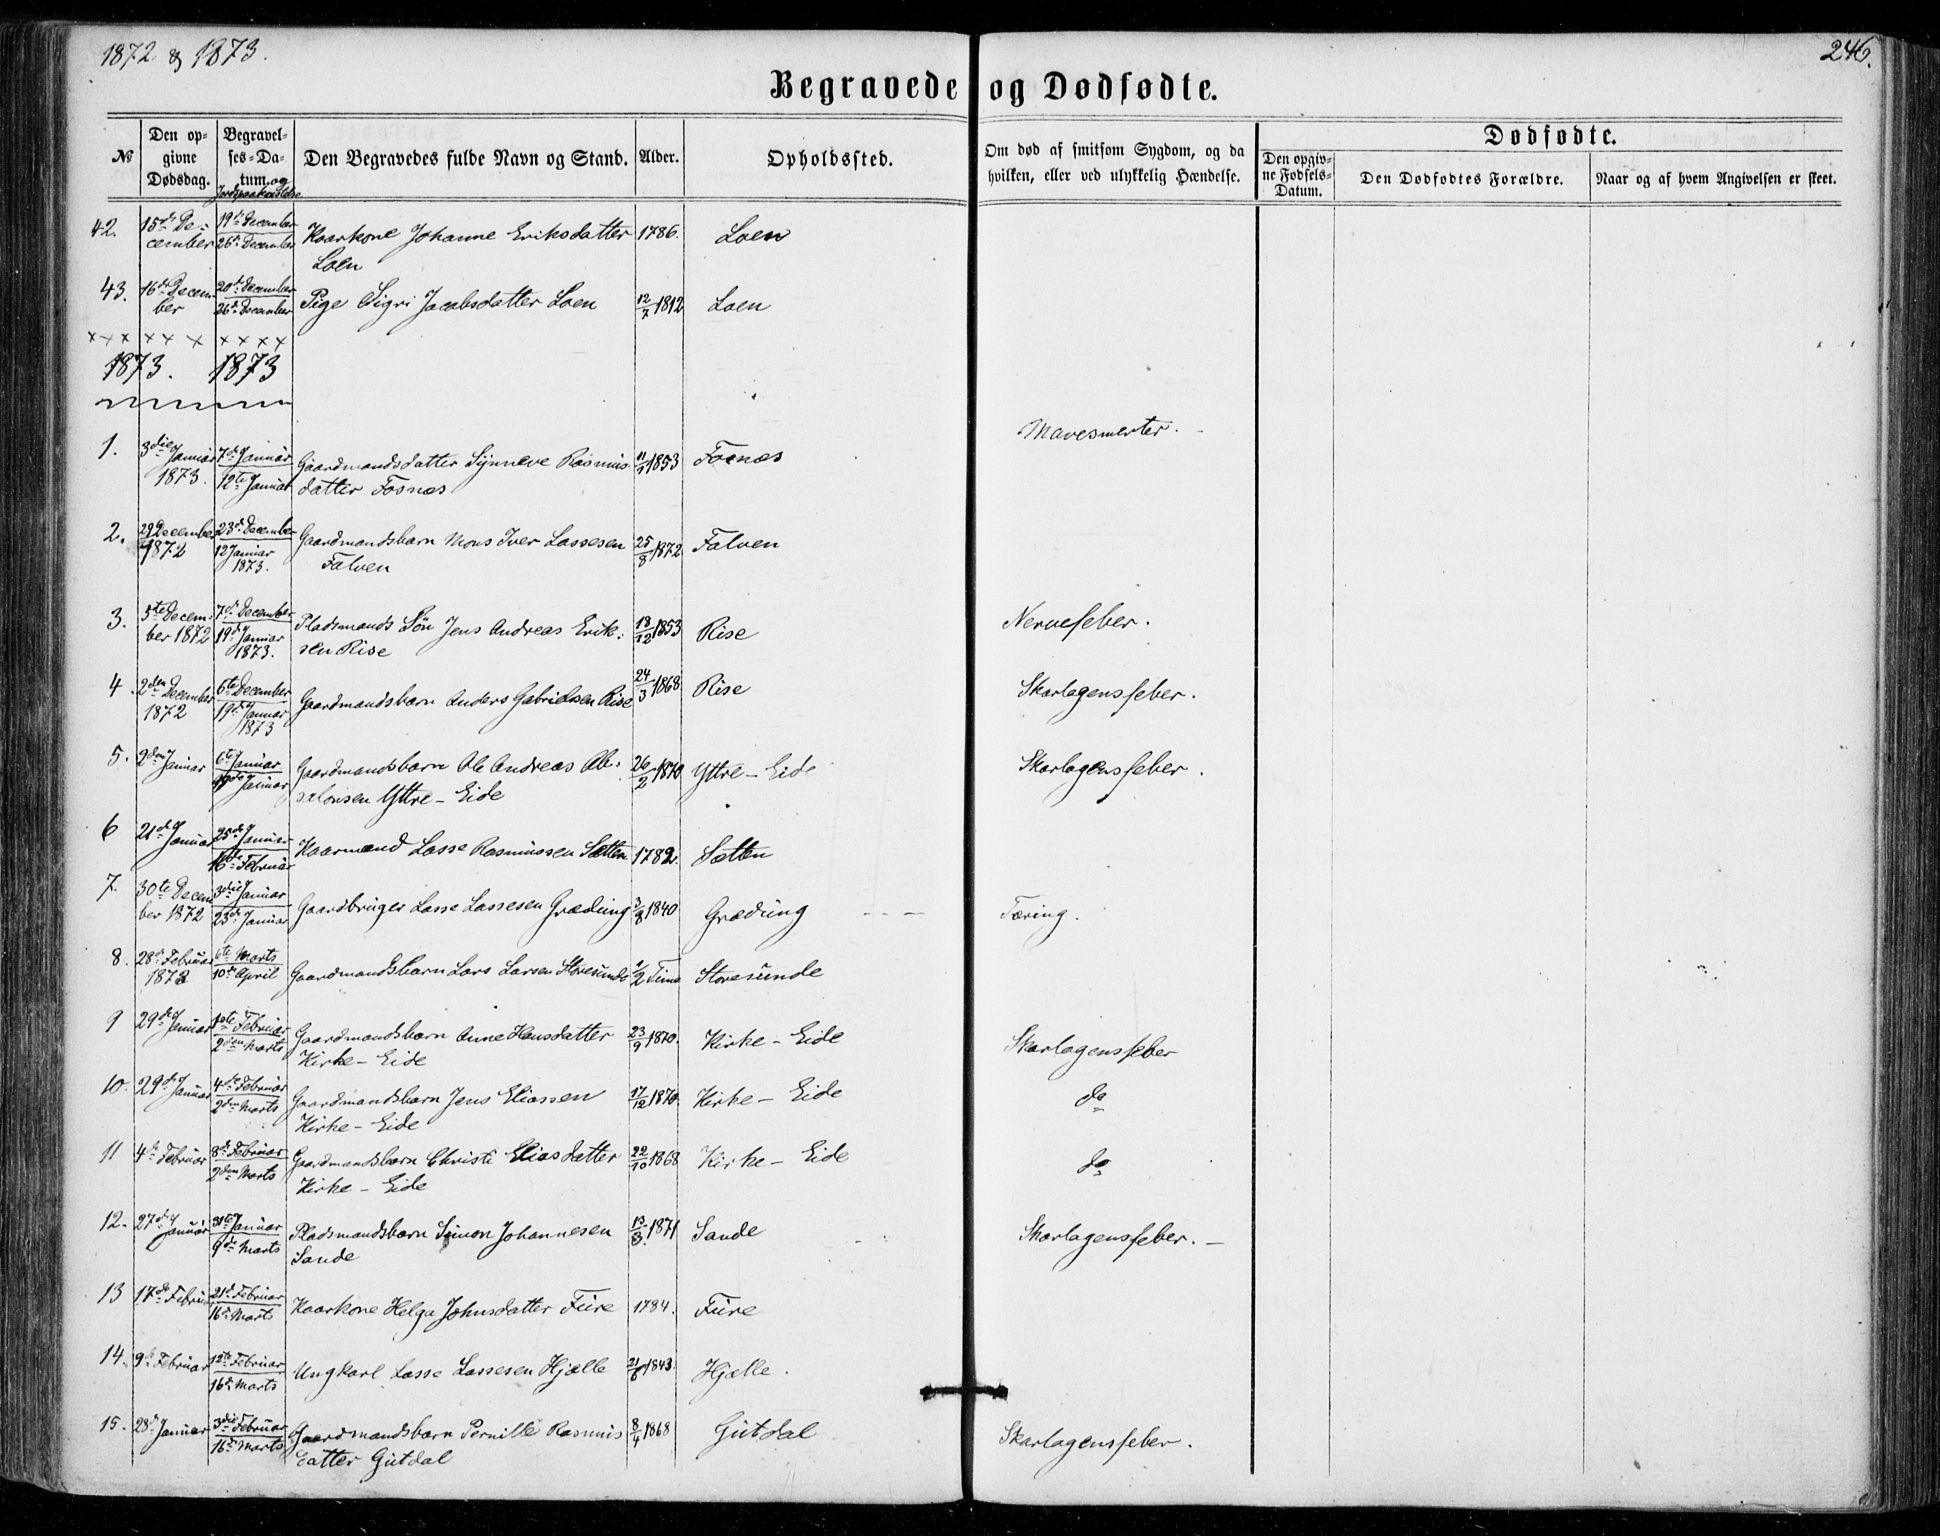 1872 & 1873.
246.
Begravede og Dødfødte.
№
Den opgivne Dødsdag.
Begravelses-Datum. og Jordpaakastelse
Den Begravedes fulde Navn og Stand.
Alder.
Opholdssted.
Om død af smitsom Sygdom, og da hvilken, eller ved ulykkelig Hændelse.
Dødfødte.
Den opgivne Fødsels-Datum.
Den Dødfødtes Forældre.
Naar og af hvem Angivelsen er skeet.
42. 15de December 19de December 26de December Kaarkone Johanne Eriksdatter 1786. Loen
Loen
43. 16de December 20de December 26de December Pige Sigri Jacobsdatter Loen 12/7 1812 Loen
x x x x x x x x x x
1873. 1873
1. 3die Januar 1873. 7de Januar 12te Januar Gaardmandsdatter Synneve Rasmus- 11/1 1853 Fosnæs Mavesmerter.
datter Fosnæs
2. 29 December 1872 23de December 12 Januar 1873. Gaardmandsbarn Mons Iver Lassesen 25/8 1872 Falven
Falven
3. 5te December 1872 7de December 19de Januar 1873. Pladsmands Søn Jens Andreas Erik- 18/12 1853 Rise Nervefeber.
sen Rise
4. 2den December 1872 6te December 19de Januar 1873 Gaardmandsbarn Anders Gabrielsen Rise 24/3 1868 Rise Skarlagensfeber.
5. 2den Januar 6te Januar 19de Januar Gaardmandsbarn Ole Andreas Ab- 26/2 1870 Yttre-Eide Skarlagensfeber.
salonsen Yttre-Eide
6 21de Januar 25de Januar 16de Februar Kaarmand Lasse Rasmussen Sætten 1782. Sætten
7. 30te December 1872 3die Januar 23de Januar Gaardbruger Lasse Lassesen Græding 3/8 1840 Græding - - - Tæring.
8. 28de Februar 1873 6te Marts 10de April Gaardmandsbarn Lars Larsen Storesunde 1/2 Time Storesunde
9 29de Januar 1ste Februar 2den Marts Gaardmandsbarn Anne Hansdatter 23/9 1870. Kirke-Eide Skarlagensfeber
Kirke-Eide
10. 29de Januar 4de Februar 2den Marts Gaardmandsbarn Jens Eliassen 17/12 1870. Kirke-Eide do
Kirke-Eide
11 4de Februar 8de Februar 2den Marts Gaardmandsbarn Christi Eliasdatter 22/10 1868 Kirke-Eide do
Kirke-Eide
12. 27de Januar 31te Januar 9de Marts Pladsmandsbarn Simon Johannesen 13/3 1871 Sande Skarlagensfeber.-
Sande
13 17de Februar 21de Februar 16de Marts Kaarkone Helga Johnsdatter Fure 1784. Fure
14. 9de Februar 12te Februar 16de Marts Ungkarl Lasse Lassesen Hjelle 21/6 1843 Hjelle.
15. 28de Januar 3die Februar 16de Marts Gaardmandsbarn Pernille Rasmus 8/4 1868 Gutdal Skarlagensfeber.
datter Gutdal